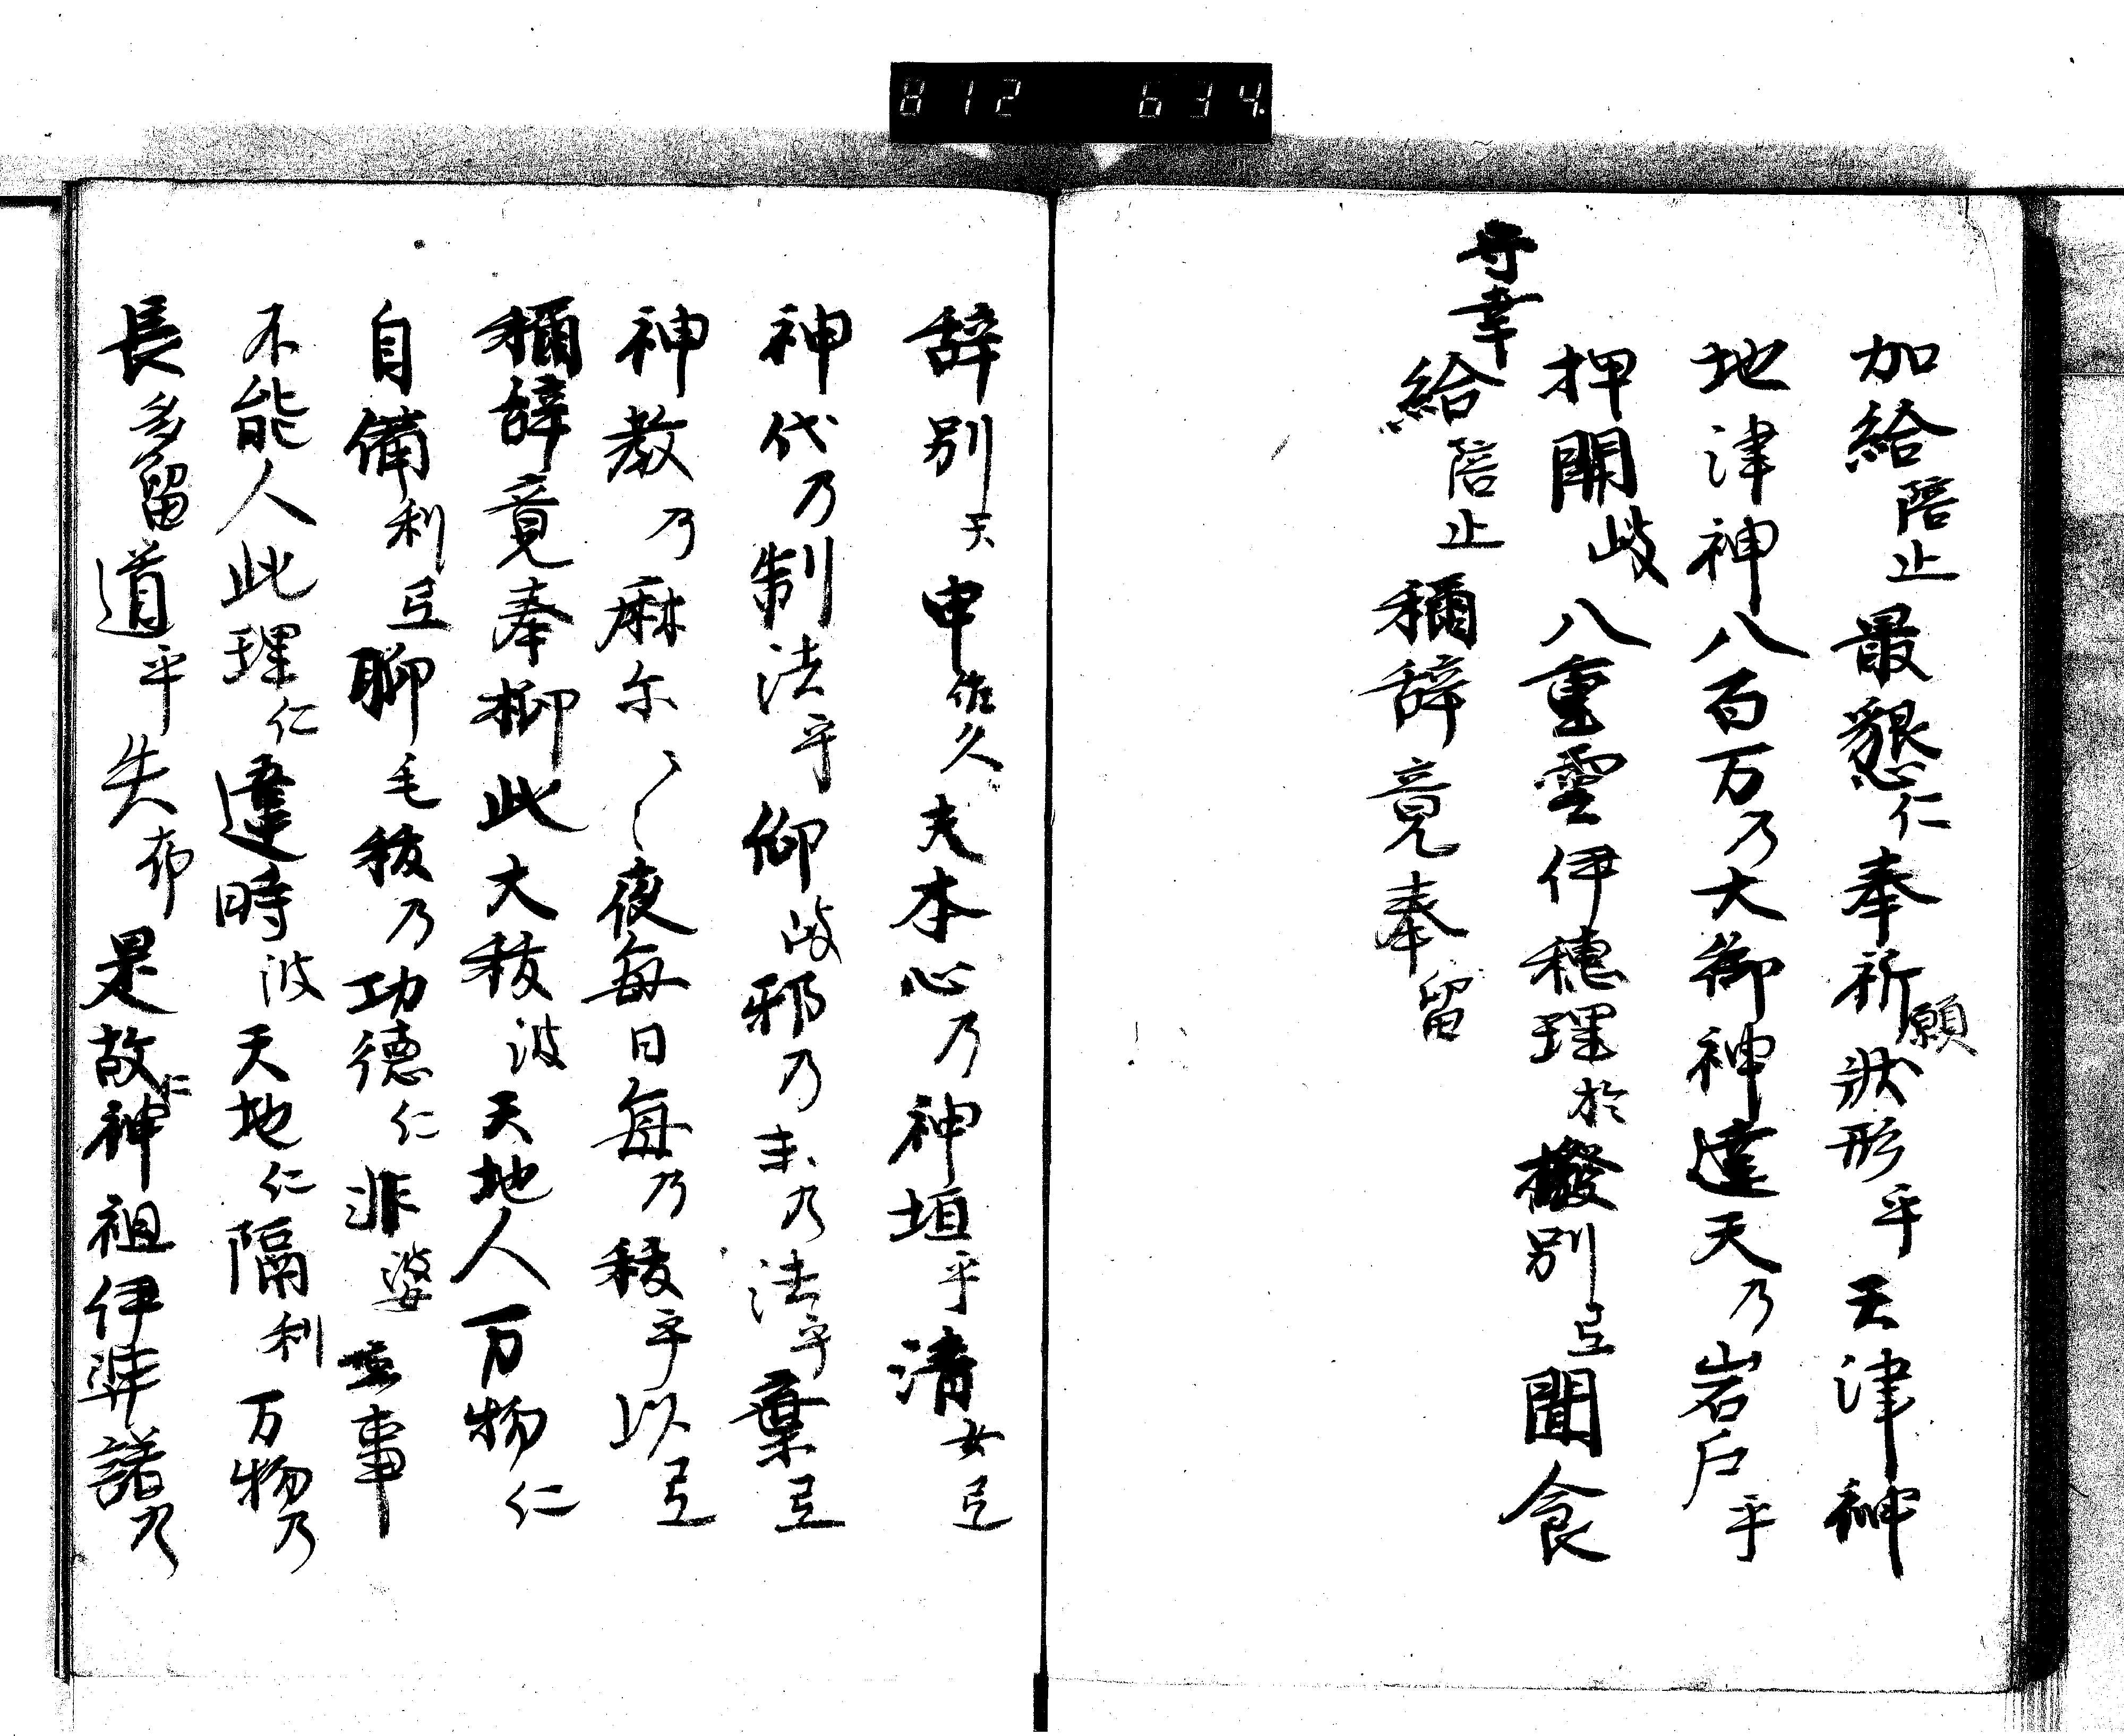 812 634
加給陪止最懇仁奉祈願状形乎天津神
地津神八百万乃大御神達天乃岩戸乎
押開岐八重雲伊穂理於撥別弖聞食
守幸給陪止稱辞竟奉留
辞別天申佐久夫本心乃神垣乎清女弖
神代乃制法乎仰岐邪乃末乃法乎棄弖
神教乃麻尓〳〵夜毎日毎乃秡乎以弖
稱辞竟奉抑此大秡波天地人万物仁
自備利弖聊毛秡乃功徳仁非婆無事
不能人此理仁違時波天地仁隔利万物乃
長多留道乎失布是故仁神祖伊弉諾乃